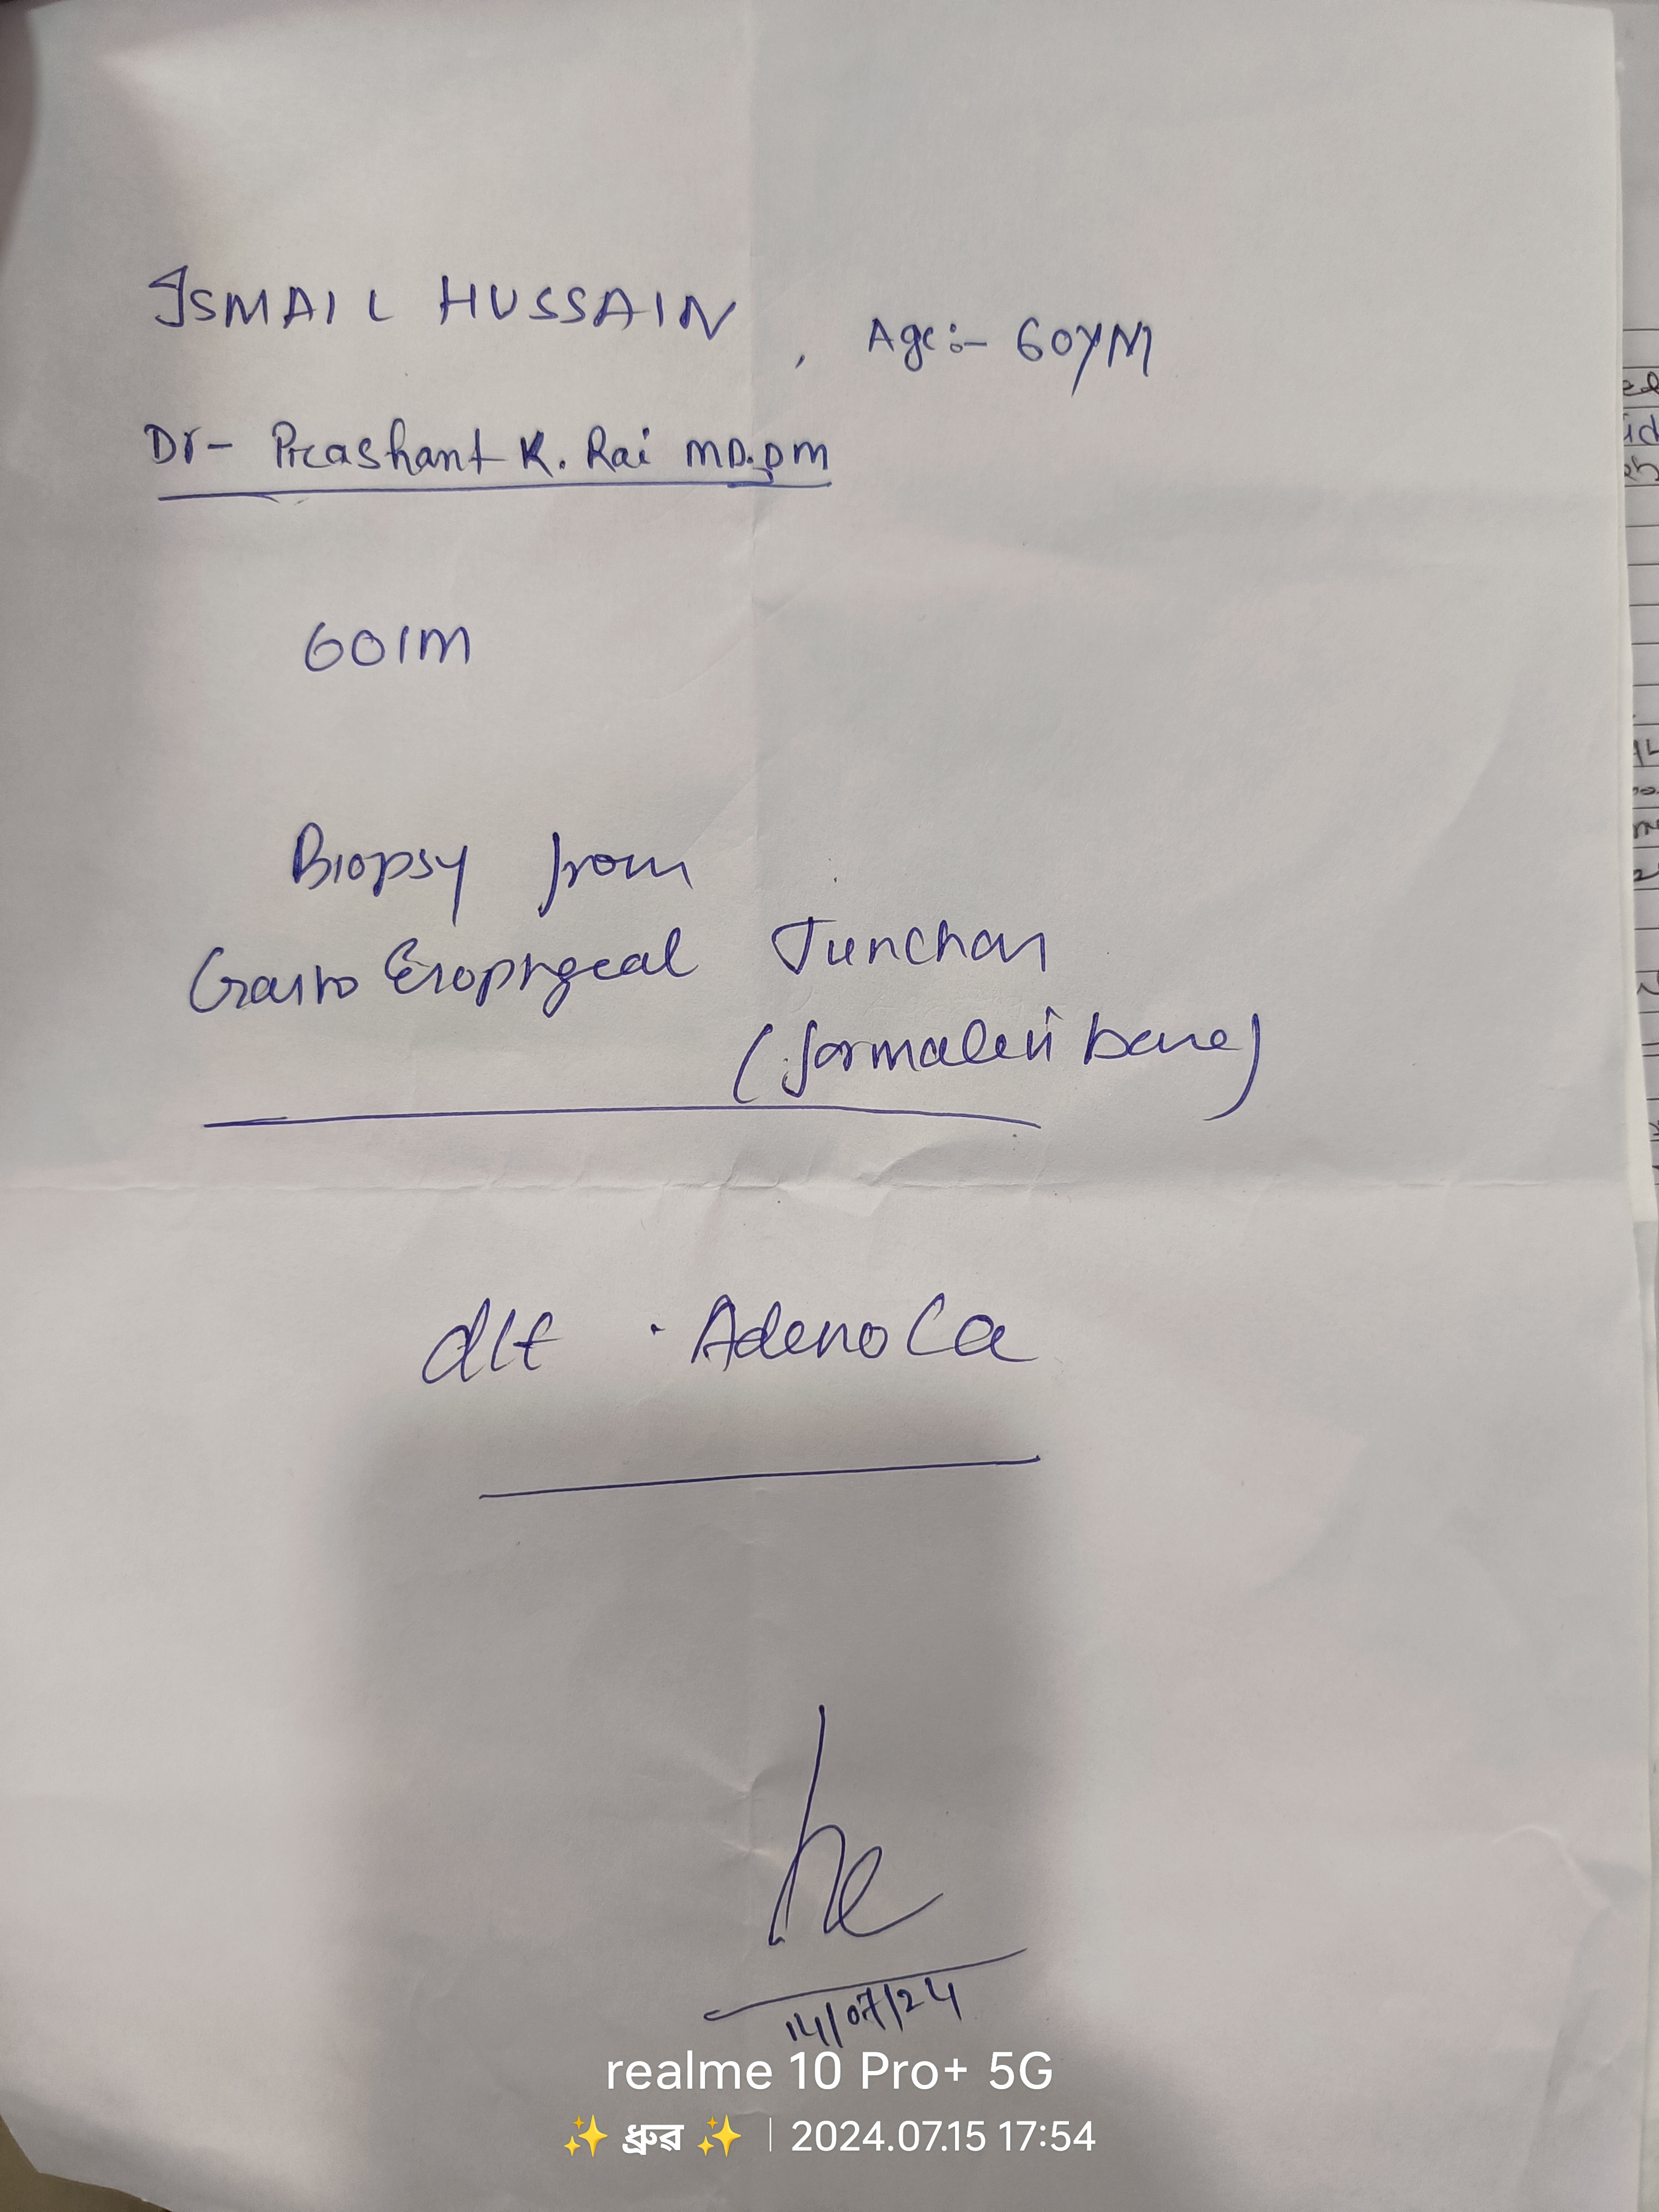 ISMAIL HUSSAIN, Age:- 60YM
Dr- Prashant K. Rai MD.DM
60/M
Biopsy from
Gastro Esophgeal Junction
(formalin base)
d/t · Adeno Ca
14/07/24
realme 10 Pro+ 5G
✨ ধ্ৰুৱ ✨ | 2024.07.15 17:54